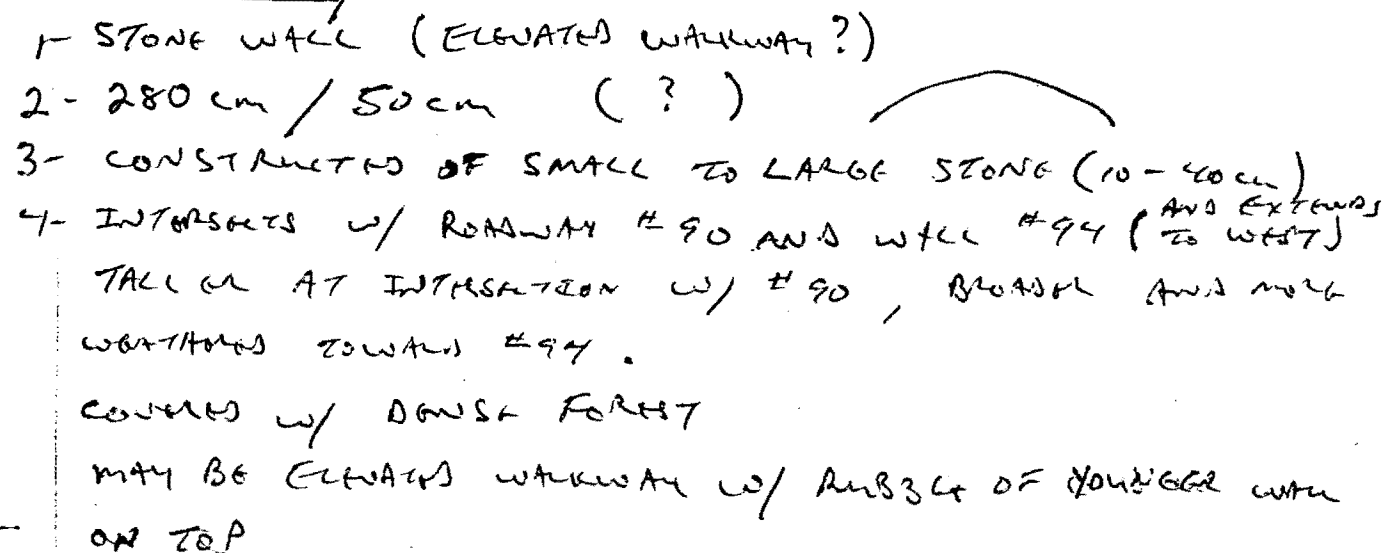 1- STONE WALL (ELEVATED WALKWAY?)
2- 280 cm / 50 cm (?)
3- CONSTRUCTED OF SMALL TO LARGE STONE (10-40 cm)
4- INTERSECTS w/ ROADWAY #90 AND WALL #94 (AND EXTENDS TO WEST)
TALLER AT INTERSECTION w/ #90, BROADER AND MORE
WEATHERED TOWARD #94.
COVERED w/ DENSE FOREST
MAY BE ELEVATED WALKWAY w/ RUBBLE OF YOUNGER WALL
ON TOP